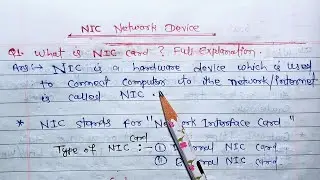 NIC Network Device
Q1. What is NIC Card ? Full Explanation.
Ans:→ NIC is a hardware device which is used
to Connect Computer to the network/internet
is called NIC.
* NIC stands for "Network Interface Card"
Type of NIC Card :- (1) Internal NIC card
(2) External NIC card.